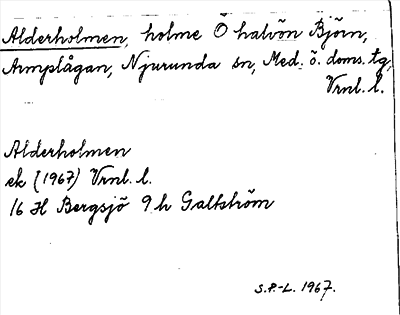 Alderholmen, holme Ö halvön Björn,
Armplågan, Njurunda sn, Med. ö. doms. tg,
Vrnl. l.
Alderholmen
ek (1967) Vrnl. l.
16 H Bergsjö 9 h Galtström
S.P.-L. 1967.